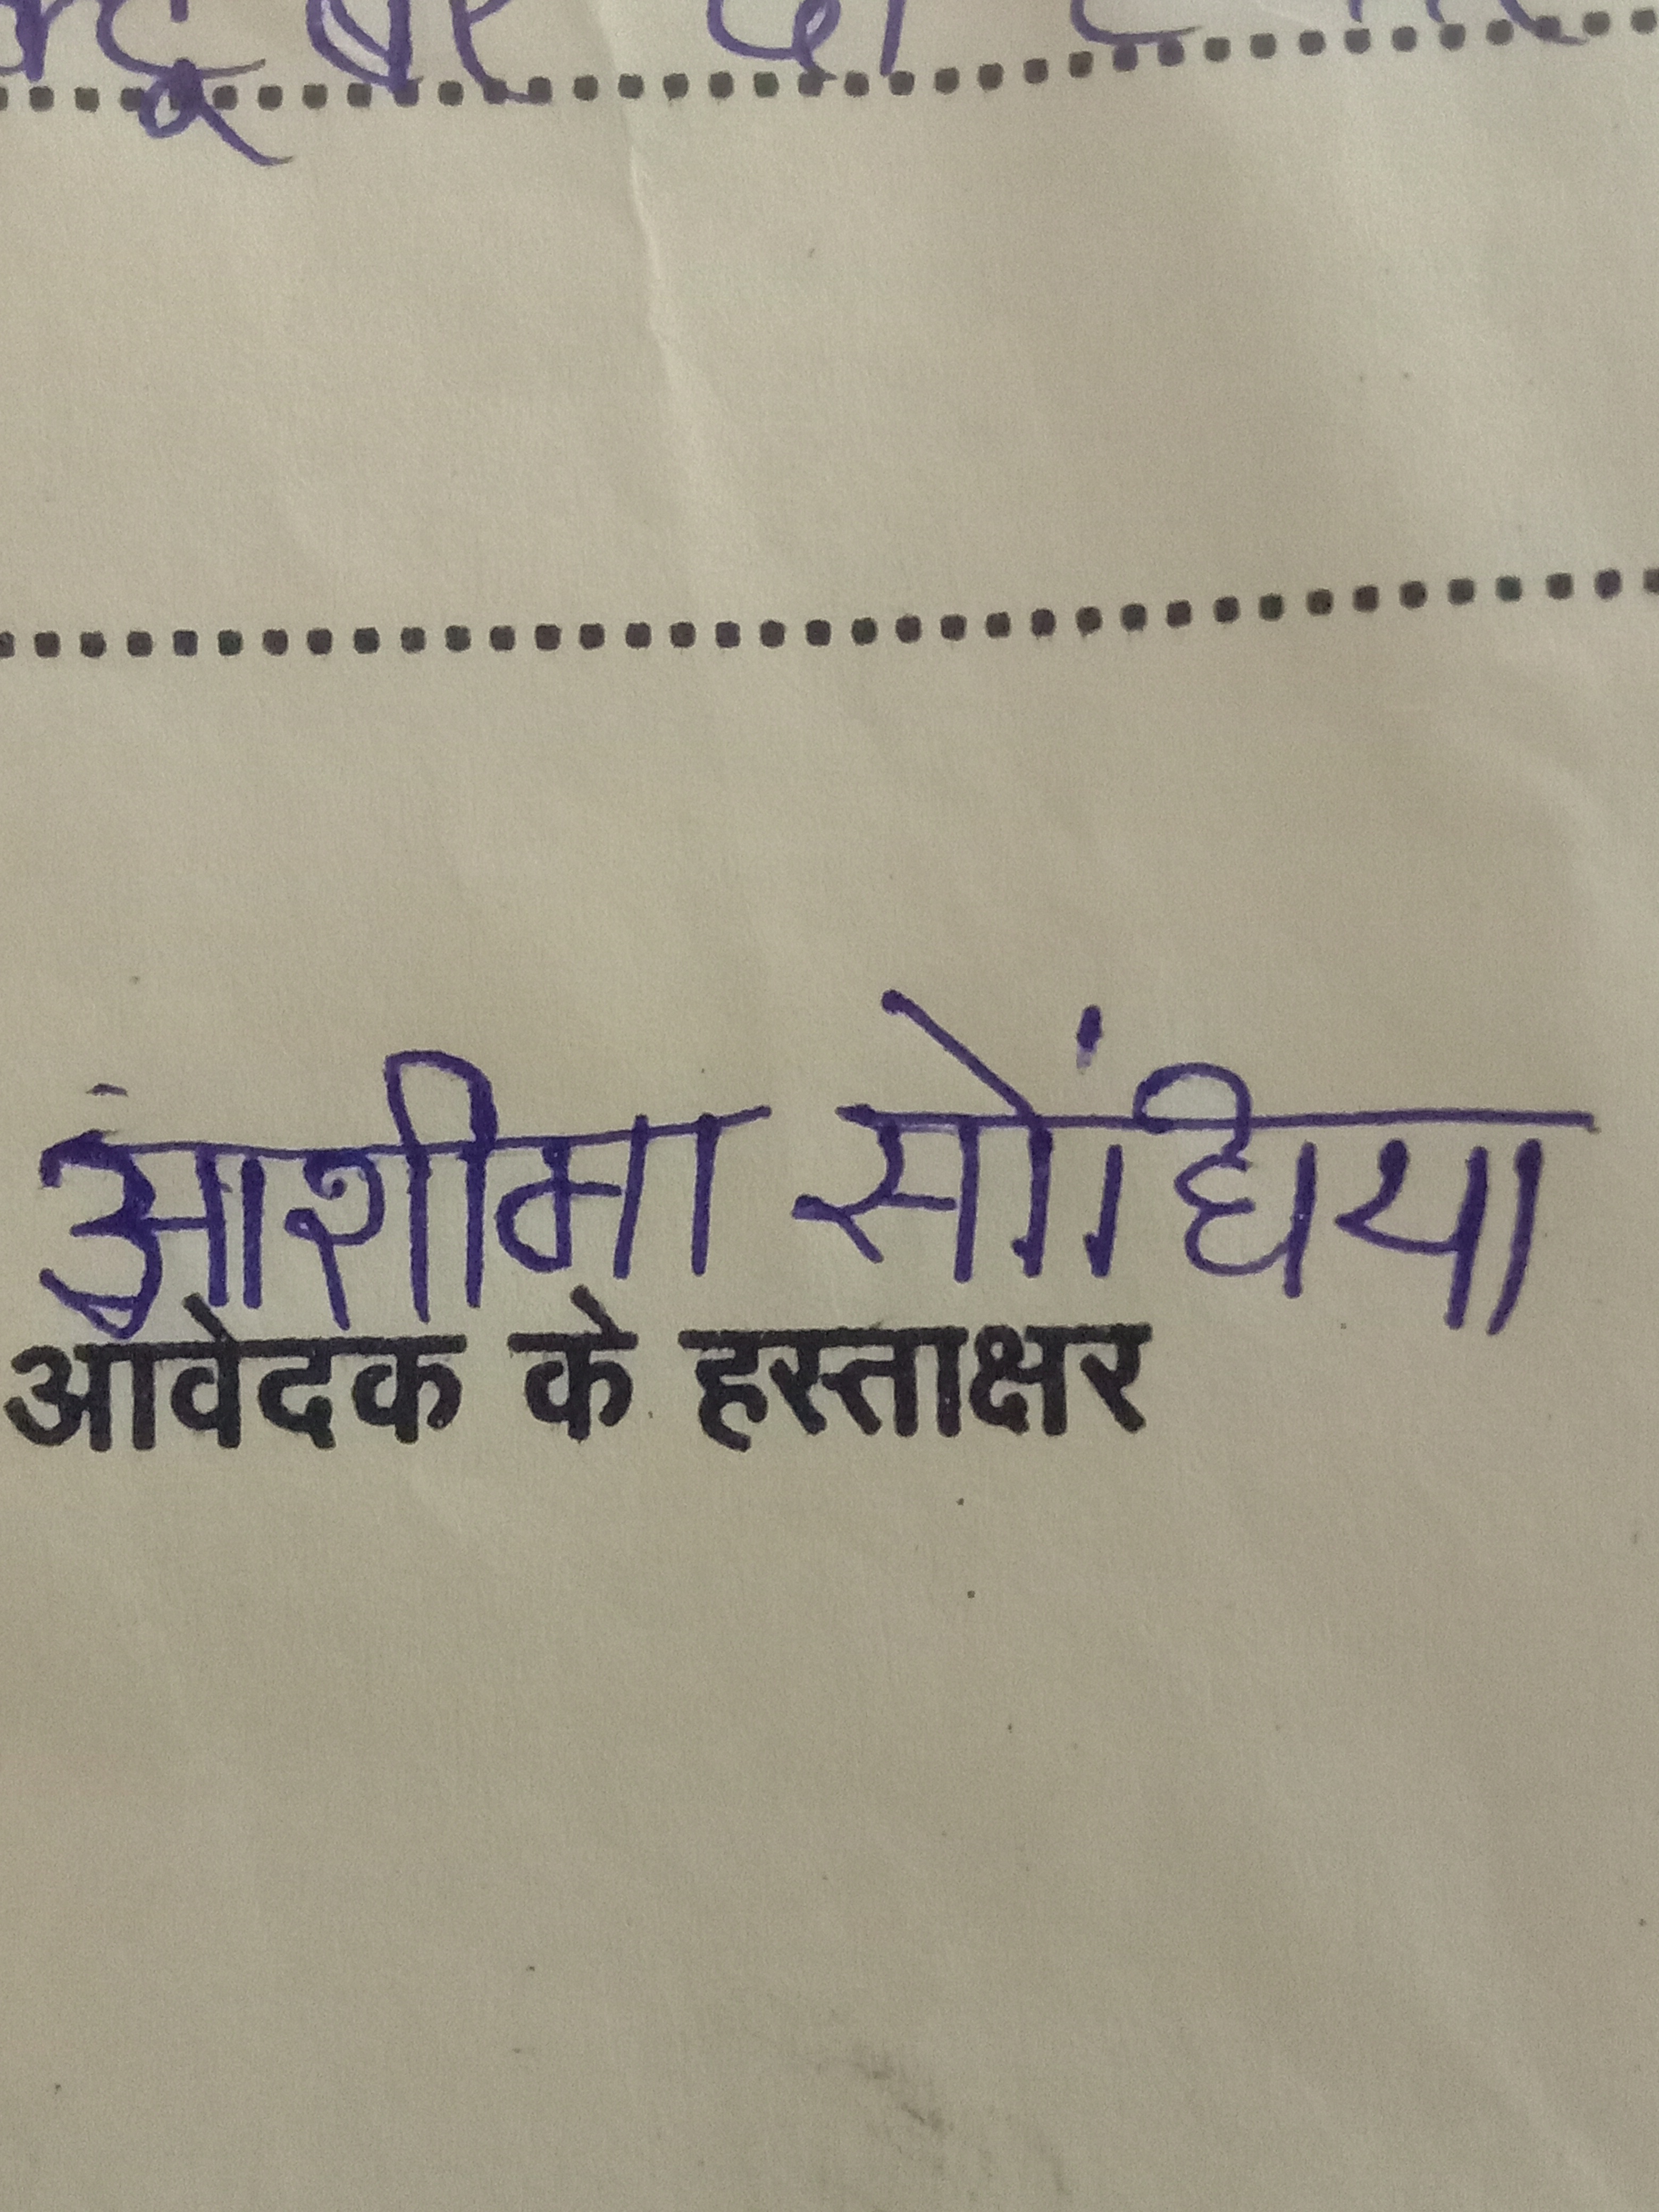 आशीमा सोंधिया
आवेदक के हस्ताक्षर